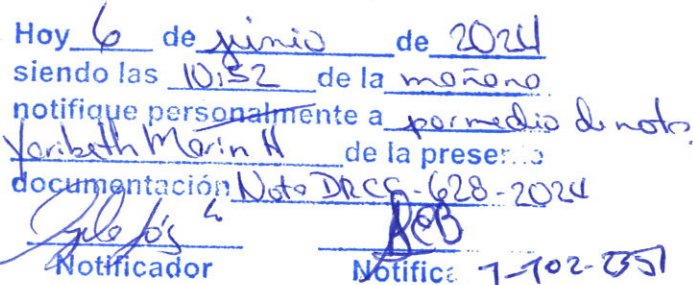 Hoy 6 de junio de 2024
siendo las 10:52 de la mañana
notifique personalmente a por medio de nota
Yaribeth Marin H de la prese
documentación Nota DRCC-628-2024
Notificador Notifica